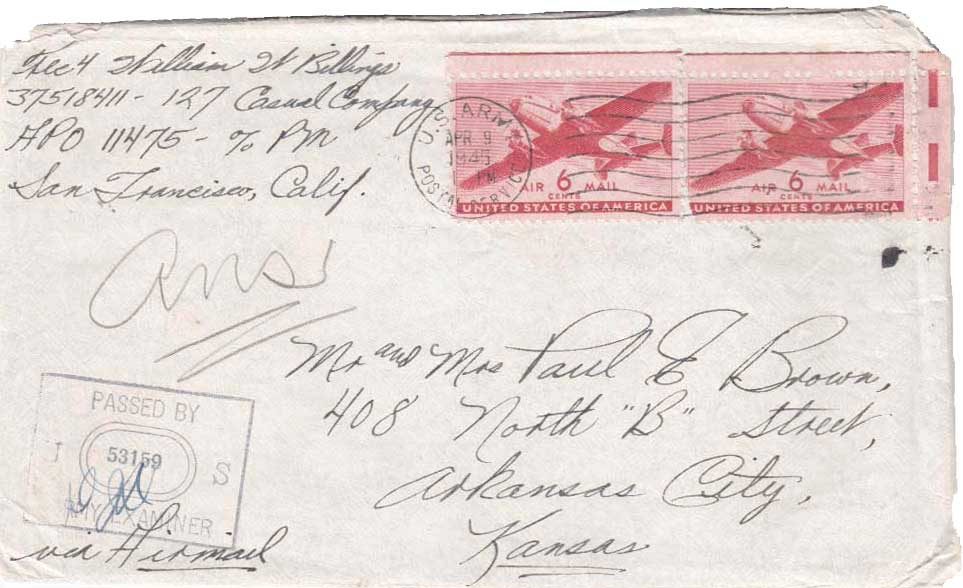 Tec 4 William W Billings
37518411 - 127 Casual Company
APO 11475 - % PM
San Francisco, Calif.
U.S. ARMY
APR 9
1945
PM
POSTAL SERVICE
AIR 6 MAIL
CENTS
UNITED STATES OF AMERICA
AIR 6 MAIL
CENTS
UNITED STATES OF AMERICA
ans
Mr and Mrs Paul E Brown,
408 North "B" Street,
Arkansas City,
Kansas
PASSED BY
53159
S
ARMY EXAMINER
via Airmail